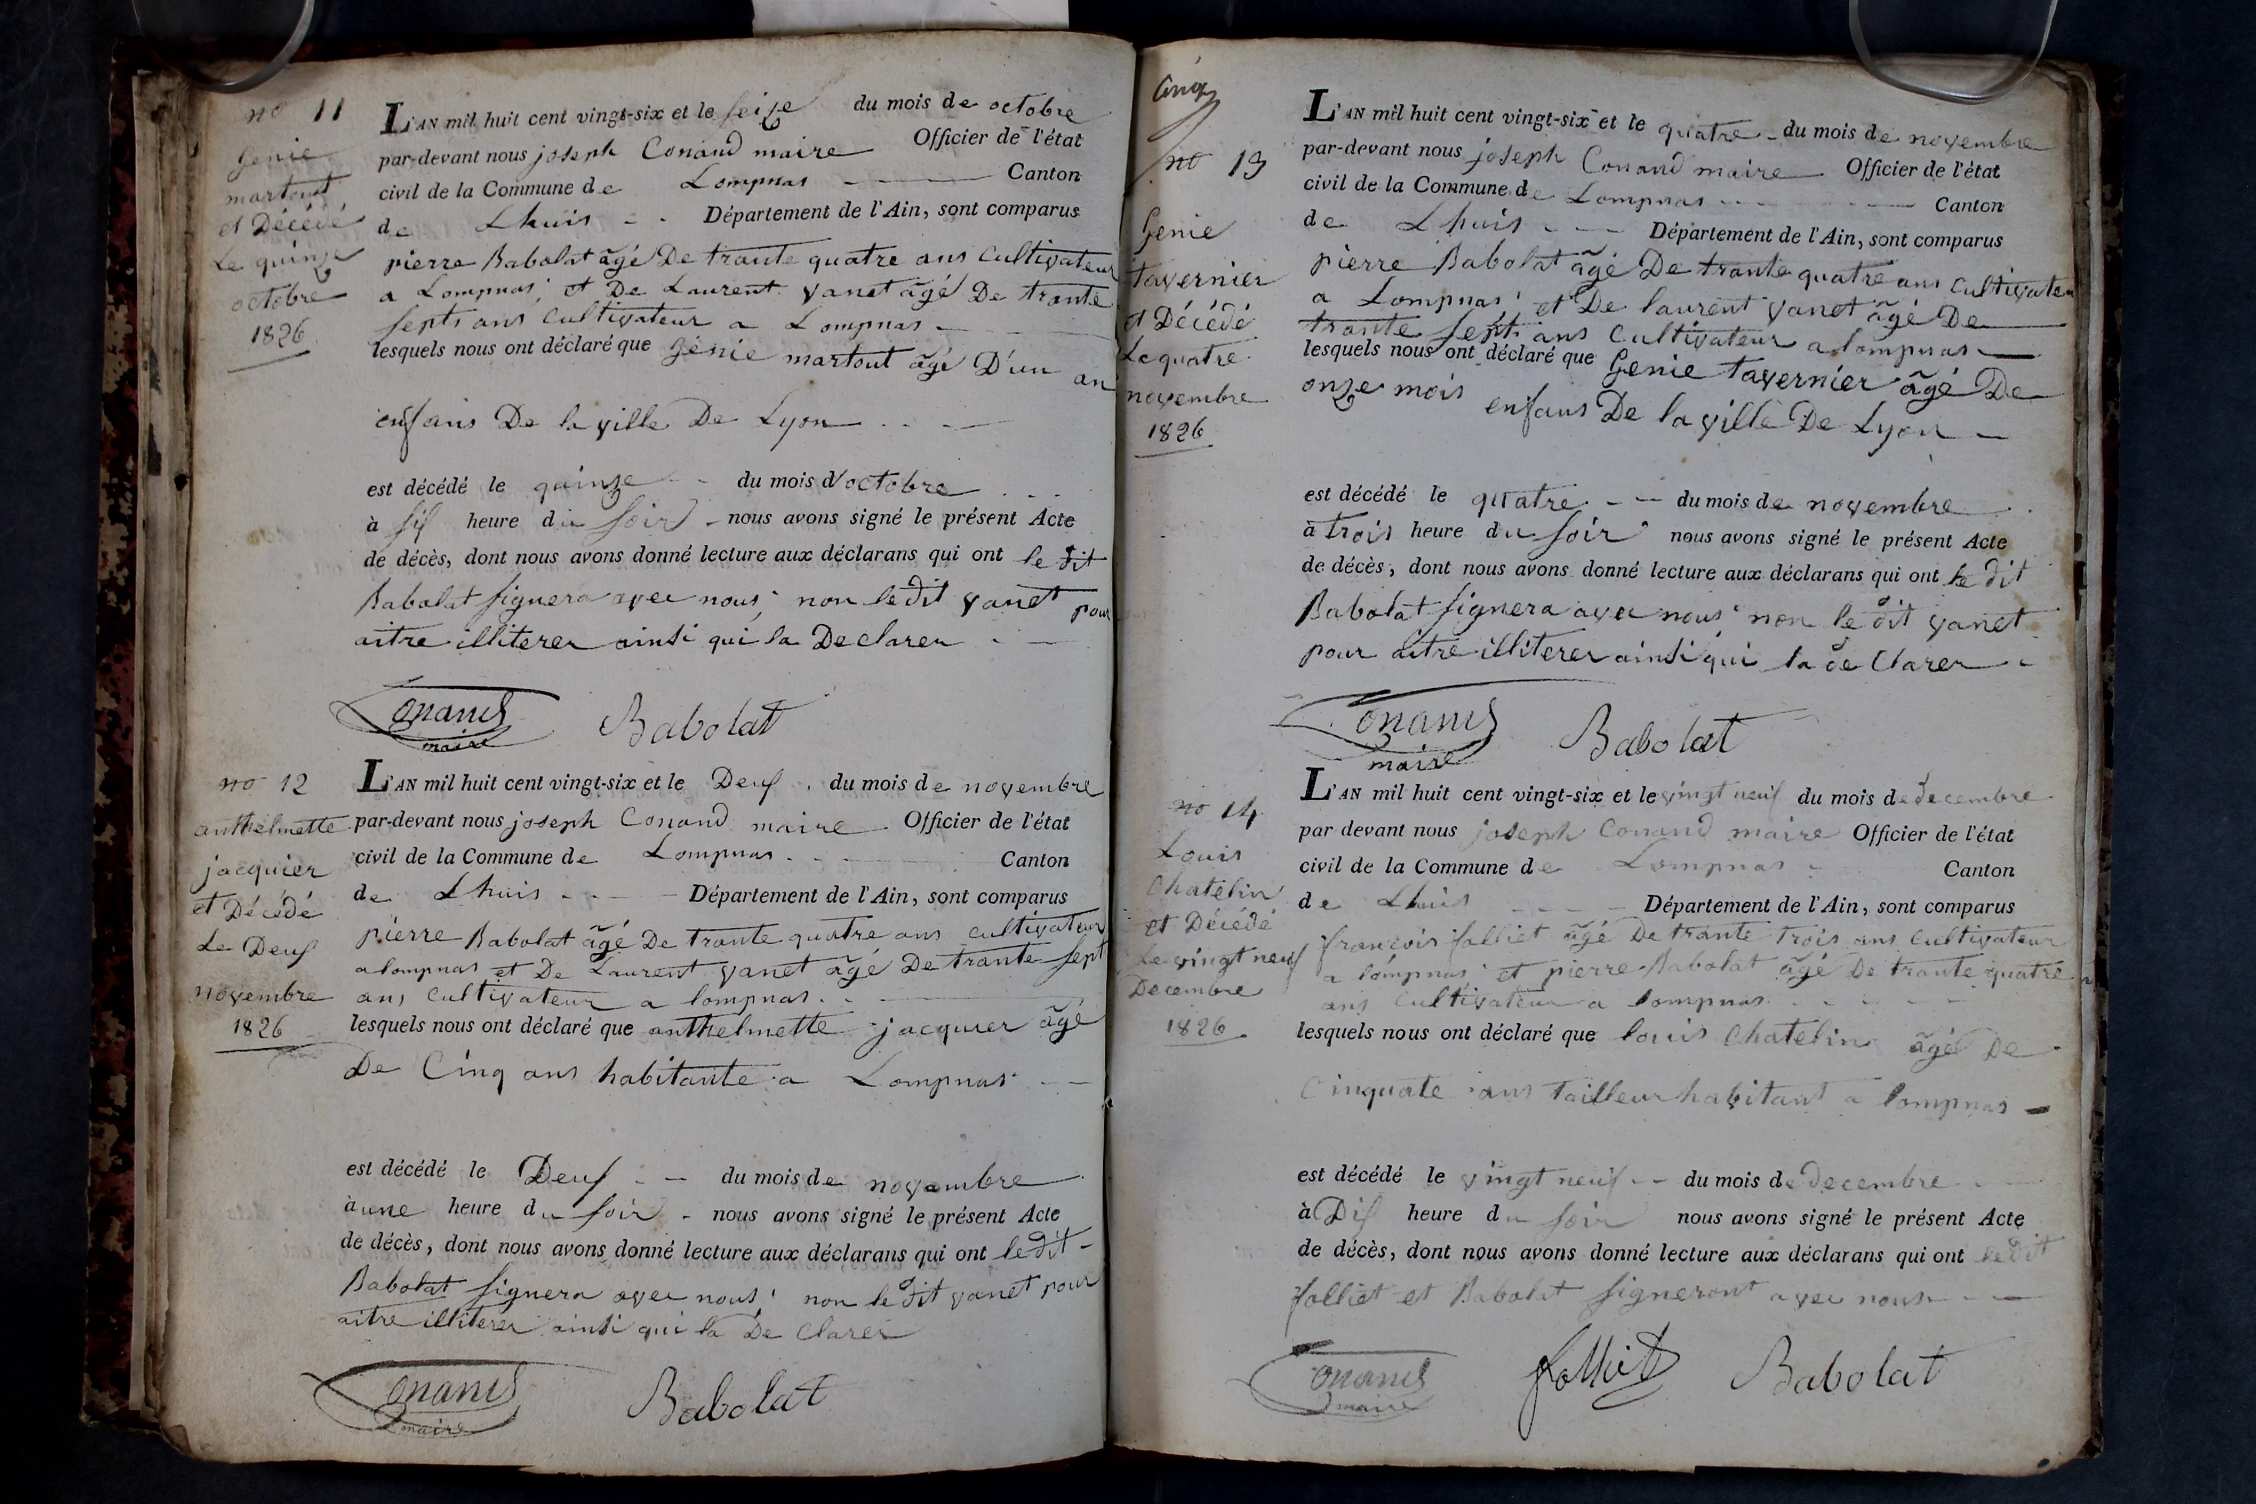 no 11
genie
martout
et Décédé
Le quinze
octobre
1826
L'AN mil huit cent vingt-six et le seize du mois de octobre
par-devant nous joseph Conand maire Officier de l'état
civil de la Commune de Lompnas Canton
de Lhuis Département de l'Ain, sont comparus
pierre Babolat âgé De trante quatre ans Cultivateur
a Lompnas, et De Laurent vanet âgé De trante
septs ans Cultivateur a Lompnas
lesquels nous ont déclaré que génie martout âgé D'un an
enfans De la ville De Lyon
est décédé le quinze du mois d'octobre
à six heure du soir nous avons signé le présent Acte
de décès, dont nous avons donné lecture aux déclarans qui ont le dit
Babolat signera avec nous, non le dit vanet pour
aitre illiterer ainsi qui la Declarer
Conand Babolat
maire
no 12
anthelmette
jacquier
et Décédé
Le Deux
novembre
1826
L'AN mil huit cent vingt-six et le Deux du mois de novembre
par-devant nous joseph Conand maire Officier de l'état
civil de la Commune de Lompnas Canton
de Lhuis Département de l'Ain, sont comparus
pierre Babolat âgé De trante quatre ans cultivateur
a lompnas et De Laurent vanet âgé De trante sept
ans Cultivateur a lompnas
lesquels nous ont déclaré que anthelmette jacquier âgé
De Cinq ans habitante a Lompnas
est décédé le Deux du mois de novembre
à une heure du soir nous avons signé le présent Acte
de décès, dont nous avons donné lecture aux déclarans qui ont le dit
Babolat signera avec nous, non le dit vanet pour
aitre illiterer ainsi qui la De Clarer
Conand Babolat
maire
Cinq
no 13
Genie
Tavernier
et Décédé
Le quatre
novembre
1826
L'AN mil huit cent vingt-six et le quatre du mois de novembre
par-devant nous joseph Conand maire Officier de l'état
civil de la Commune de Lompnas Canton
de Lhuis Département de l'Ain, sont comparus
pierre Babolat âgé De trante quatre ans Cultivateur
a Lompnas, et De laurent vanet âgé De
trante septs ans Cultivateur a lompnas
lesquels nous ont déclaré que Genie tavernier âgé De
onze mois enfans De la ville De Lyon
est décédé le quatre du mois de novembre
à trois heure du soir nous avons signé le présent Acte
de décès, dont nous avons donné lecture aux déclarans qui ont le dit
Babolat signera avec nous non le dit vanet
pour aitre illiterer ainsi qui la de Clarer
Conand Babolat
maire
no 14
Louis
Chatelin
et Décédé
Le vingt neuf
Decembre
1826
L'AN mil huit cent vingt-six et le vingt neuf du mois de decembre
par devant nous joseph Conand maire Officier de l'état
civil de la Commune de Lompnas Canton
de Lhuis Département de l'Ain, sont comparus
françois folliet âgé De trante trois ans cultivateur
a lompnas, et pierre Babolat âgé De trante quatre
ans cultivateur a lompnas
lesquels nous ont déclaré que louis Chatelin âgé De
Cinquate ans Tailleur habitant a lompnas
est décédé le vingt neuf du mois de decembre
à Dix heure du soir nous avons signé le présent Acte
de décès, dont nous avons donné lecture aux déclarans qui ont le dit
folliet et Babolat signeront avec nous
Conand folliet Babolat
maire